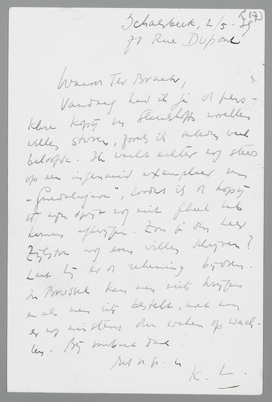 Schaerbeek, 2/5-
71 Rue Dupont
Waarde Ter Braak,
Vandaag had ik je de pers-
klare kopij van Slauerhoffs novellen
willen sturen, zooals ik verleden week
beloofde. Ik wacht echter nog steeds
op een ingenaaid exemplaar van
"Guadalajara", zoodat ik de kopij
nog niet geheel heb
kunnen Zou je den heer
Zijlstra nog eens willen schrijven?
Laat hij er de rekening bijdoen.
In Brussel kan men niets krijgen
en als men iets bestelt, moet men
er nog minstens drie weken op wach-
ten. Bij voorbaat dank.
K. L.